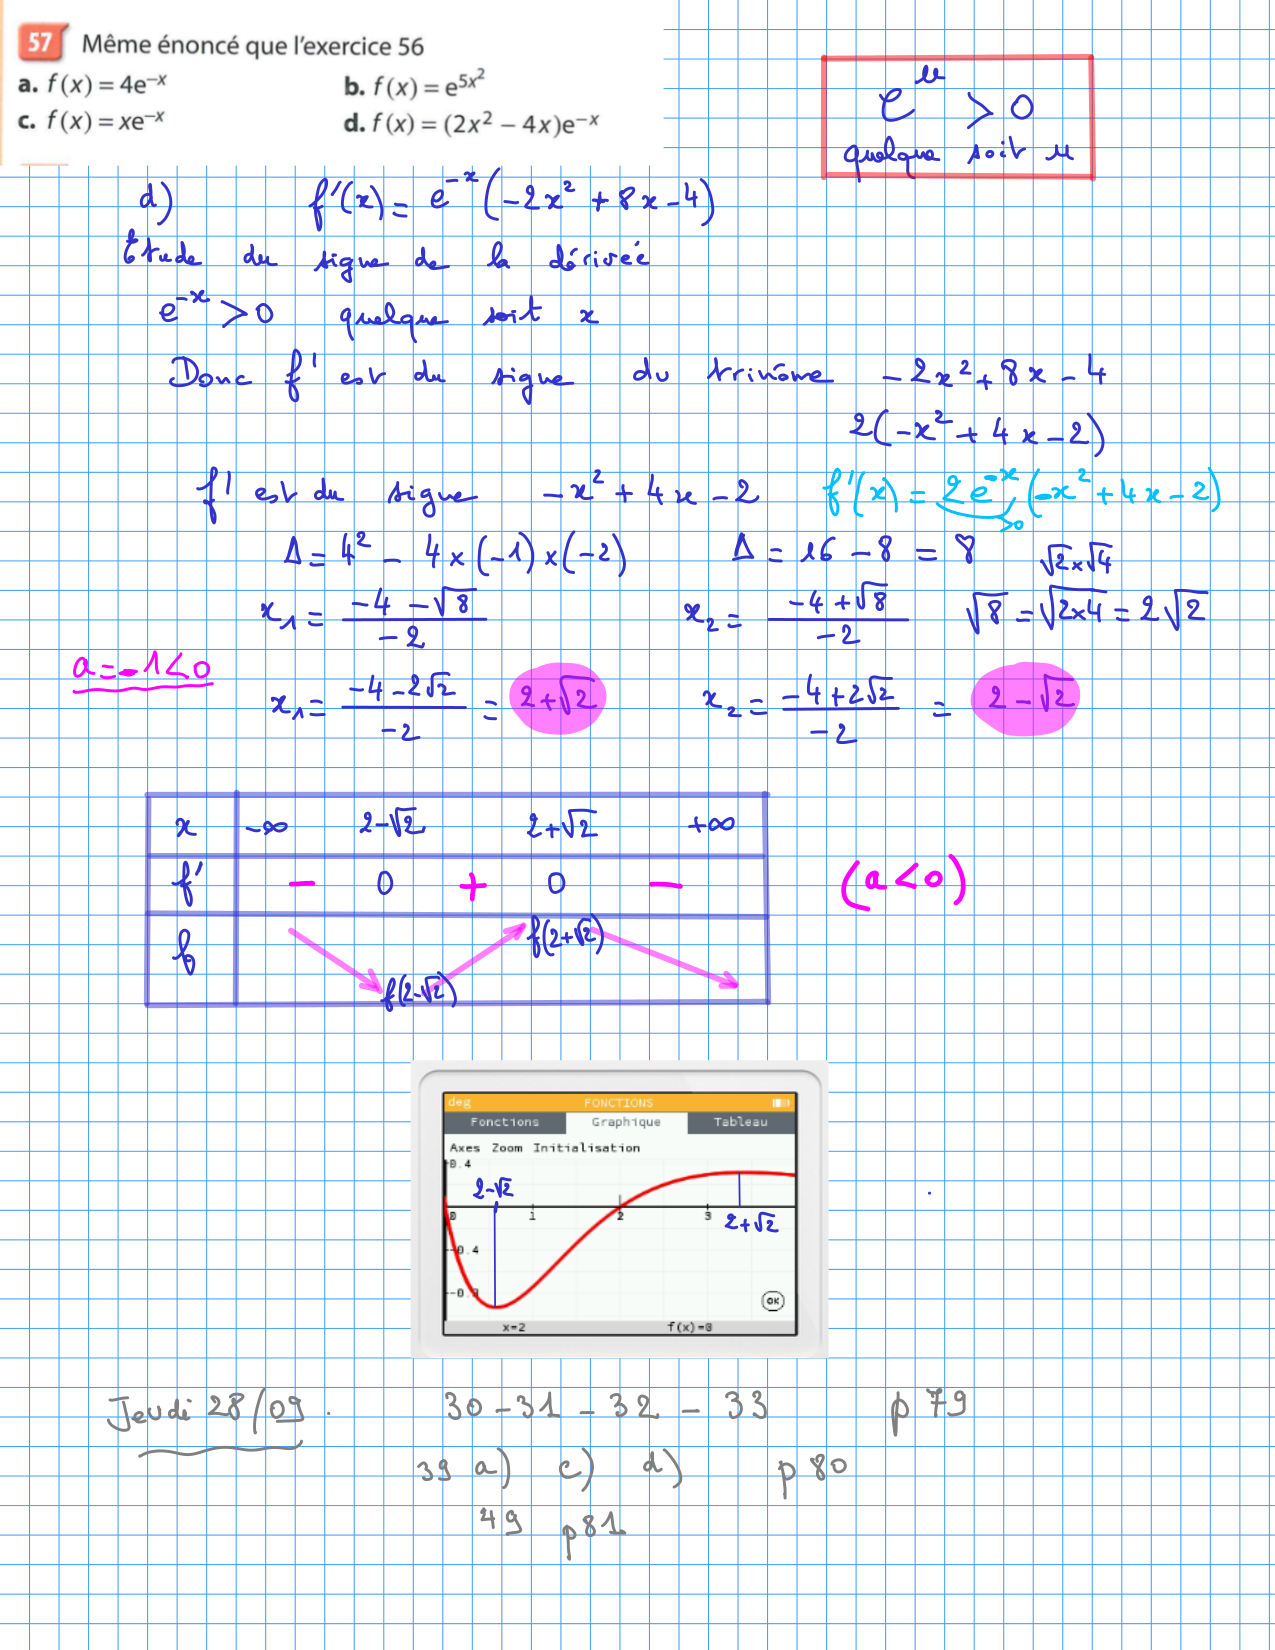 57 Même énoncé que l'exercice 56
a. f(x) = 4e⁻ˣ b. f(x) = e^{5x²}
c. f(x) = xe⁻ˣ d. f(x) = (2x² – 4x)e⁻ˣ
eᵘ > 0
quelque soit u
d) f'(x) = e⁻ˣ(-2x² + 8x - 4)
Etude du signe de la dérivée
e⁻ˣ > 0 quelque soit x
Donc f' est du signe du trinôme -2x² + 8x - 4
2(-x² + 4x - 2)
f' est du signe -x² + 4x - 2 f'(x) = 2e⁻ˣ(-x² + 4x - 2)
>0
Δ = 4² - 4×(-1)×(-2) Δ = 16 - 8 = 8 √2×√4
x₁ = (-4 - √8)/(-2) x₂ = (-4 + √8)/(-2) √8 = √(2×4) = 2√2
a = -1 < 0
x₁ = (-4 - 2√2)/(-2) = 2+√2 x₂ = (-4 + 2√2)/(-2) = 2 - √2
x -∞ 2-√2 2+√2 +∞
f' - 0 + 0 - (a < 0)
f f(2-√2) f(2+√2)
deg FONCTIONS
Fonctions Graphique Tableau
Axes Zoom Initialisation
0.4
2-√2
0 1 2 3
2+√2
-0.4
-0.8
OK
x=2 f(x)=0
Jeudi 28/09. 30 - 31 - 32 - 33 p 79
39 a) c) d) p 80
49 p81